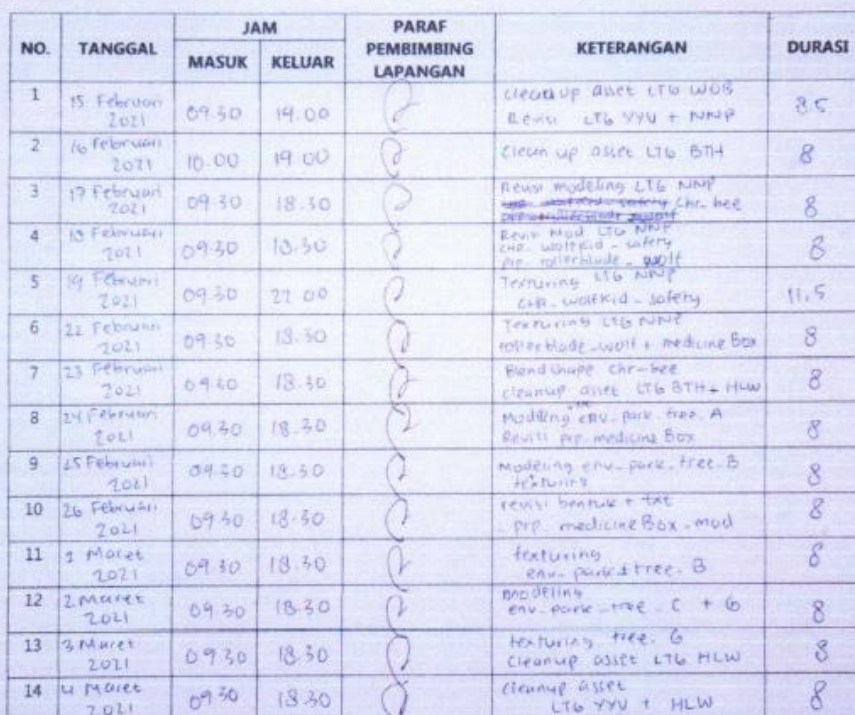 NO. TANGGAL JAM PARAF PEMBIMBING LAPANGAN KETERANGAN DURASI
MASUK KELUAR
1 15 Februari 2021 09.30 19.00 cleanup asset LTG WOB 8.5
Revisi LTG YYV + NNP
2 16 Februari 2021 10.00 19.00 Clean up asset LTG BTH 8
3 17 Februari 2021 09.30 18.30 Revisi modeling LTG NNP 8
chr-bee
4 18 Februari 2021 09.30 18.30 Revisi Mod LTG NNP 8
chr. wolfkid - safety
prp. rollerblade - wolf
5 19 Februari 2021 09.30 Texturing LTG NNP 11.5
chr. wolfkid - safety
6 22 Februari 2021 09.30 18.30 Texturing LTG NNP 8
rollerblade-wolf + medicine Box
7 23 Februari 2021 09.30 18.30 Blendshape chr-bee 8
cleanup asset LTG BTH + HLW
8 24 Februari 2021 09.30 18.30 Modeling env. park. tree. A 8
Revisi prp. medicine Box
9 25 Februari 2021 09.30 18.30 Modeling env. park. tree. B 8
texturing
10 26 Februari 2021 09.30 18.30 revisi bentuk + txt 8
- prp. medicineBox - mod
11 1 Maret 2021 09.30 18.30 texturing 8
env. park tree. B
12 2 Maret 2021 09.30 18.30 modeling 8
env. park - tree - C + G
13 3 Maret 2021 09.30 18.30 texturing tree. G 8
Cleanup asset LTG HLW
14 4 Maret 2021 09.30 18.30 cleanup asset 8
LTG YYV + HLW